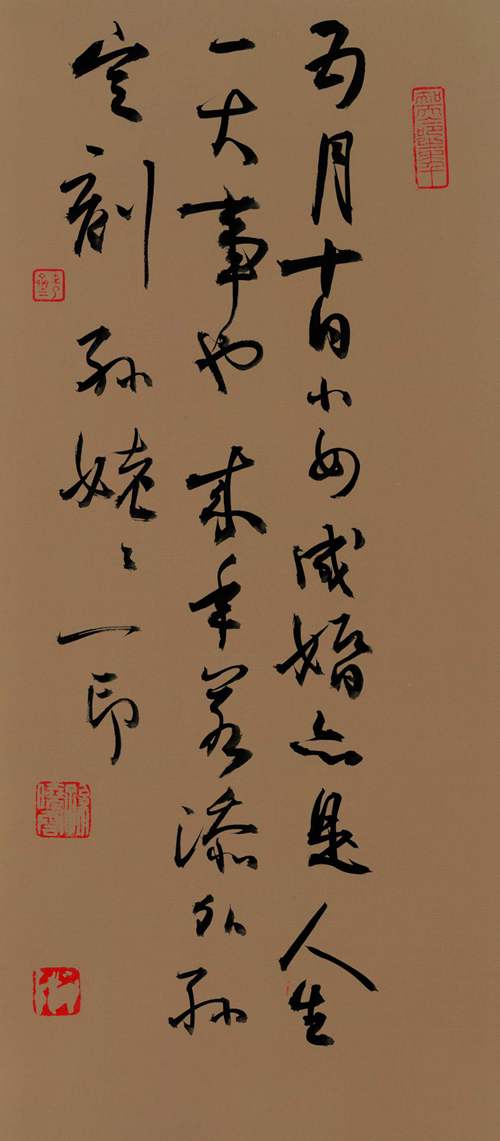 五月十日小女成婚亦是人生
一大事也 来年若添外孙
定刻 孙姥々一印